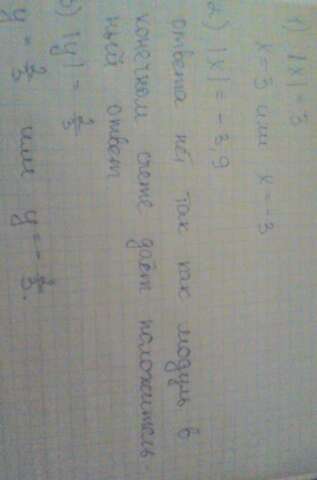 1) |x| = 3
x = 3 или x = -3
2) |x| = -3,9
ответа нет, так как модуль в
конечном счете даёт положитель-
ный ответ
3) |y| = 2/3
y = 2/3 или y = - 2/3.